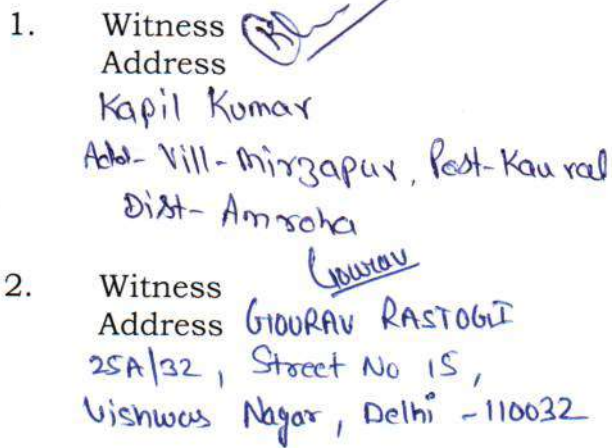 1. Witness
Address
Kapil Kumar
Add- Vill- Mirzapur, Post- Kaural
Dist- Amroha
Gourav
2. Witness
Address GOURAV RASTOGI
25A/32, Street No 15,
Vishwas Nagar, Delhi - 110032